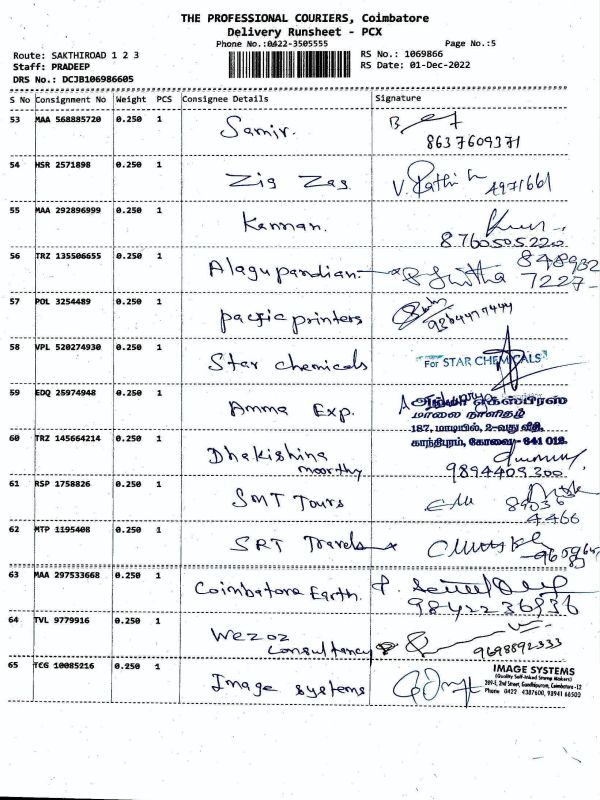 THE PROFESSIONAL COURIERS, Coimbatore
Delivery Runsheet - PCX
Phone No.:0422-3505555 Page No.:5
Route: SAKTHIROAD 1 2 3 RS No.: 1069866
Staff: PRADEEP RS Date: 01-Dec-2022
DRS No.: DCJB106986605
S No Consignment No Weight PCS Consignee Details Signature
53 MAA 568885720 0.250 1 Samir.
8637609371
54 HSR 2571898 0.250 1 Zig Zag V. Rathi 4971661
55 MAA 292896999 0.250 1 Kannan.
8760505220
56 TRZ 135506655 0.250 1 Alagupandian 848932
7227
57 POL 3254489 0.250 1 pacific printers
9364477444
58 VPL 520274930 0.250 1 Star chemicals For STAR CHEMICALS
59 EDQ 25974948 0.250 1 Amma Exp. அம்மா எக்ஸ்பிரஸ்
மாலை நாளிதழ்
187, மாடியில், 2-வது வீதி,
60 TRZ 145664214 0.250 1 Dhakishina காந்திபுரம், கோவை - 641 012.
moorthy 9894409300
61 RSP 1758826 0.250 1 SMT Tours 89036
4466
62 MTP 1195408 0.250 1 SRT Travels
63 MAA 297533668 0.250 1 Coimbatore Earth.
9842236936
64 TVL 9779916 0.250 1 Wezoz
consultancy 9698892333
65 TCG 10085216 0.250 1 Image systems IMAGE SYSTEMS
(Quality Self-Inked Stamp Makers)
289-E, 2nd Street, Gandhipuram, Coimbatore -12
Phone 0422 4387600, 98941 66502